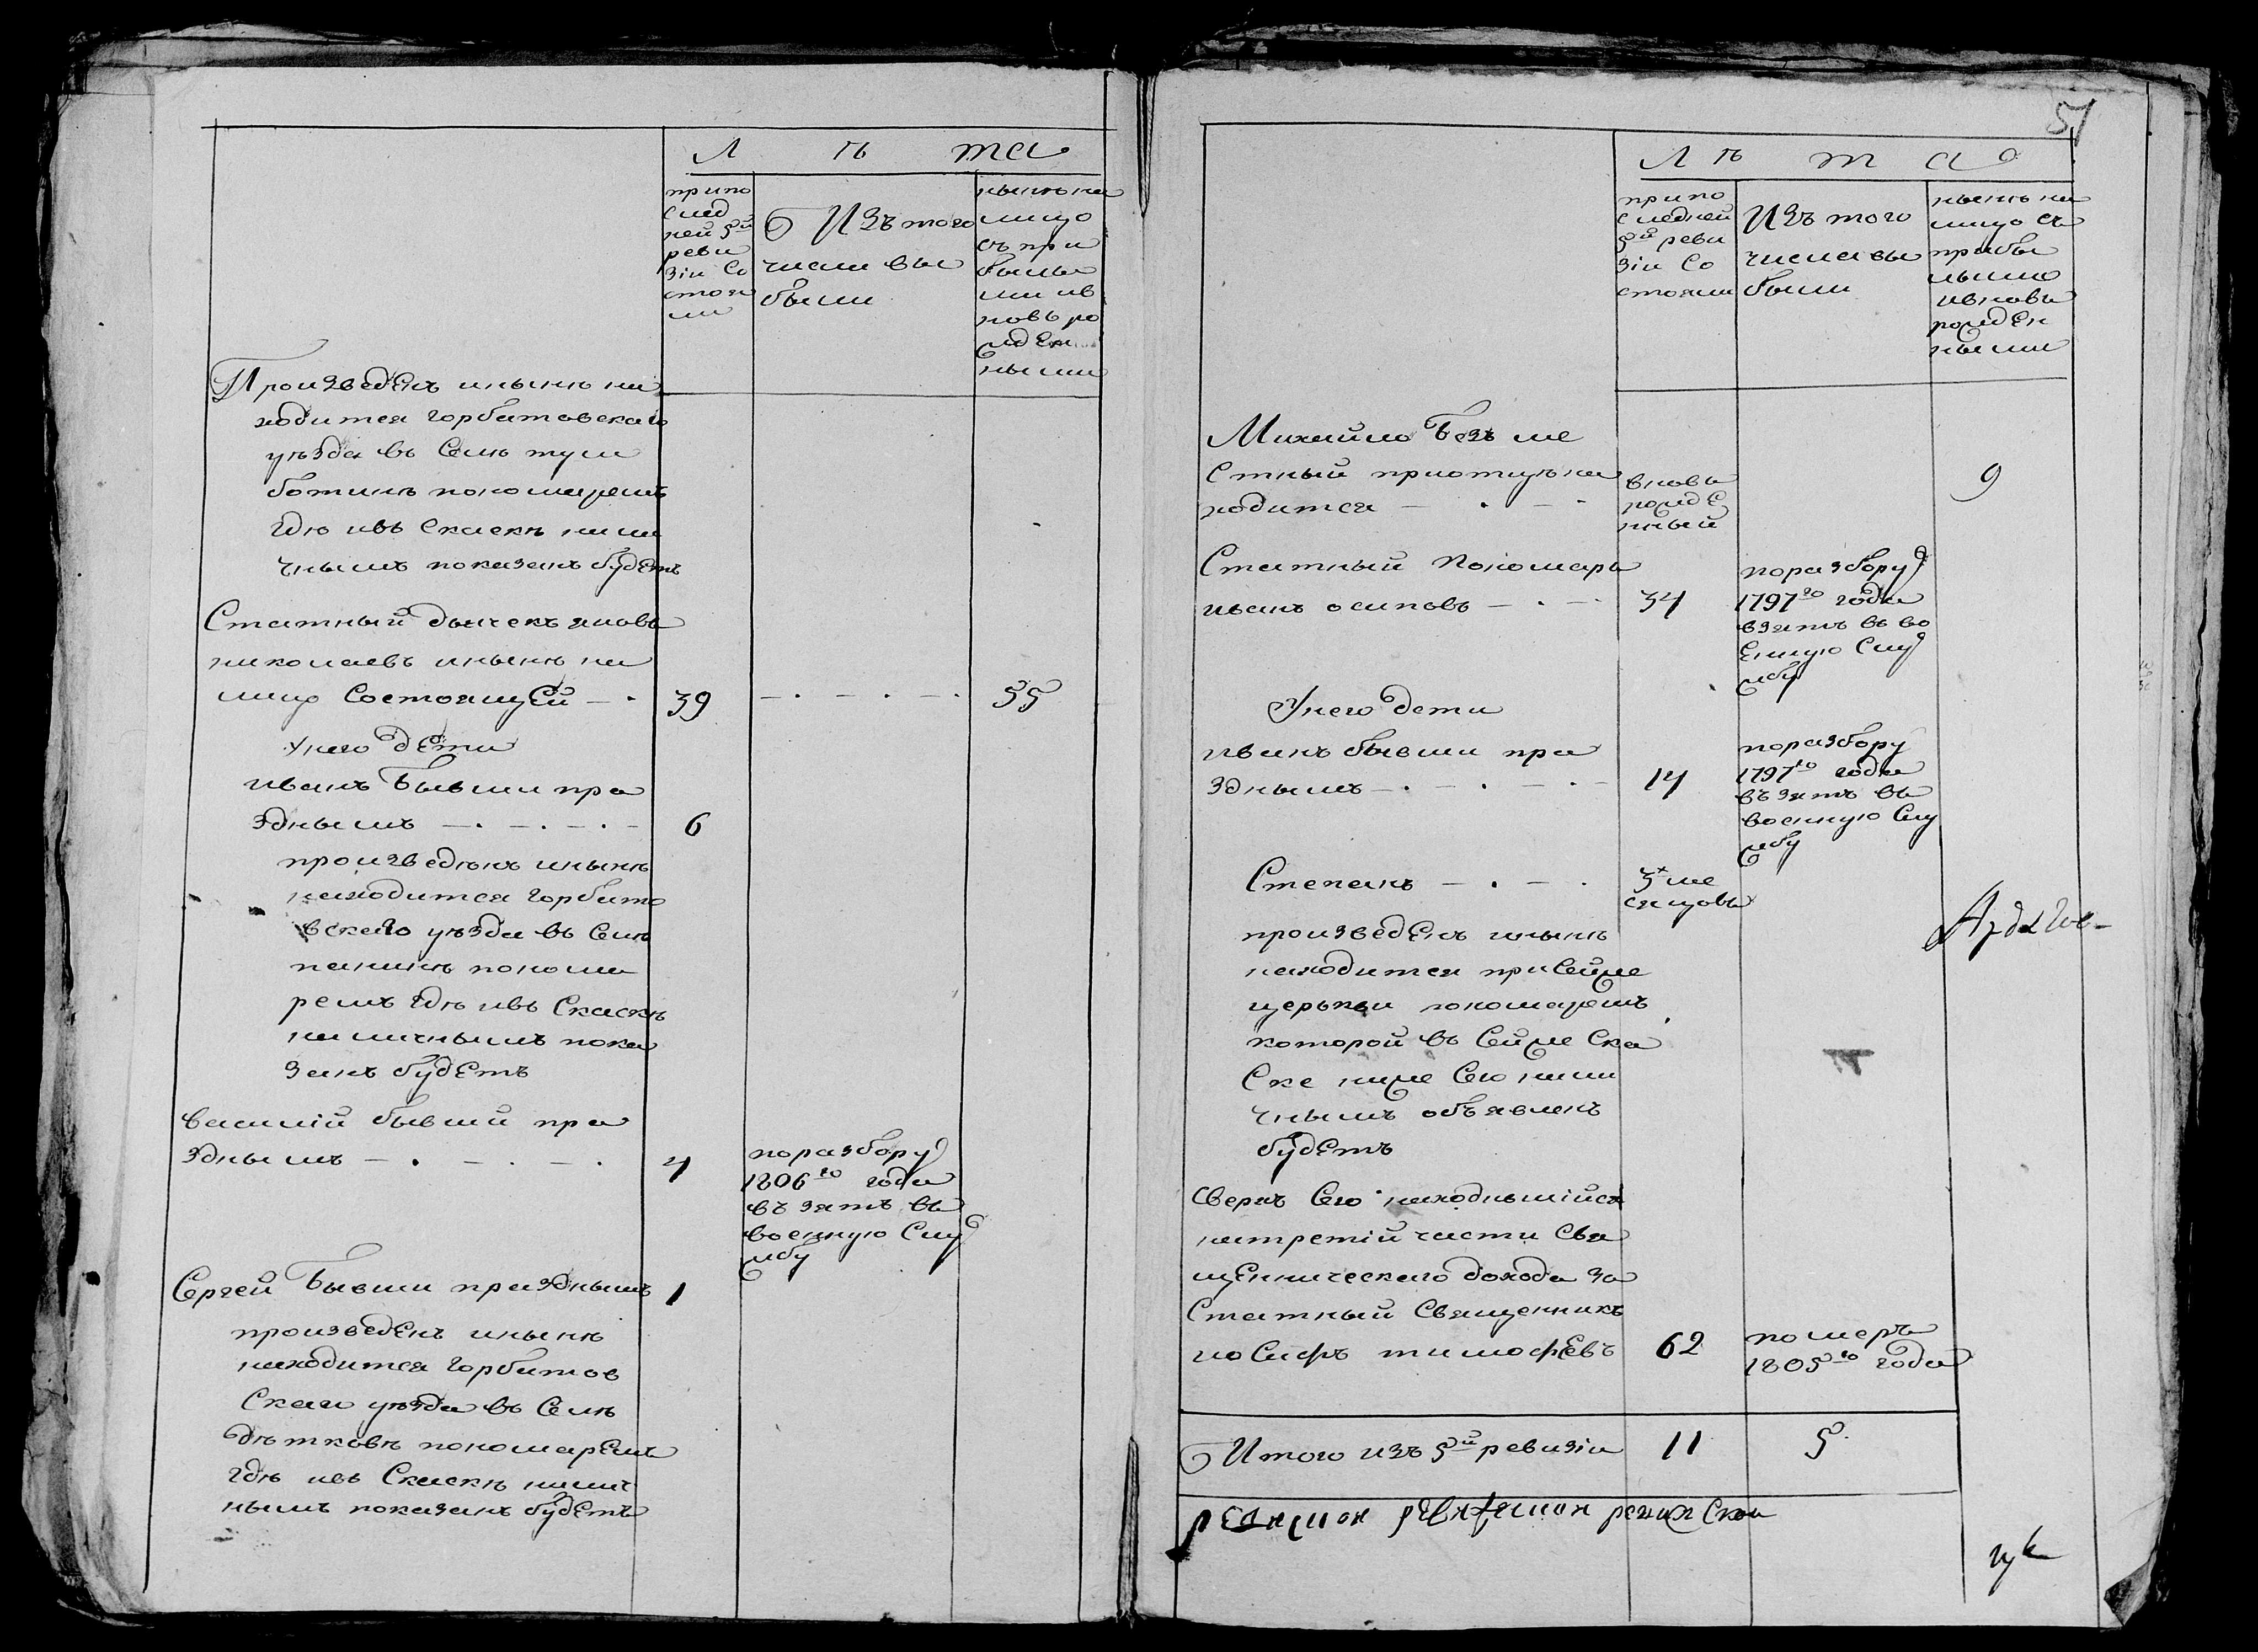 Л ѣ та
при по
след
ней 5й
реви
зіи Со
стоя
ли
Изъ того
числа вы
были
нынѣ на
лицо
съ при
былы
ми ив
новь ро
жден
ными
Произведенъ инынѣ на
ходится горбатовскаго
уѣзда въ Селѣ тум
ботинѣ пономаремъ
гдѣ ивъ Скаскѣ нали
чнымъ показанъ будетъ
Статный дьячекъ яковъ
николаевъ инынѣ на
лицо Состоящей
39
55
Унего дети
иванъ бывши пра
зднымъ
6
произведѣнъ инынѣ
находится горбато
вскаго уѣзда въ Селѣ
панинѣ понома
ремъ гдѣ ивъ Скаскѣ
наличнымъ пока
занъ будетъ
василій бывши пра
зднымъ
4
поразбору
1806го года
въ зятъ въ
военную Слу
жбу
Сергей бывши празднымъ
1
произведенъ инынѣ
находится горбатов
Скаго уѣзда въ Селѣ
дѣтковѣ пономаремъ
гдѣ ивъ Скаскѣ налич
нымъ показанъ будетъ
51
Л ѣ т а
при по
следней
5й реви
зіи Со
стояли
Изъ того
числа вы
были
нынѣ на
лицо съ
прибы
лыми
ивновь
рожден
ными
Михайло безъ ме
Стный приотцѣ на
ходится
вновь
рожде
нный
9
Статный Пономарь
иванъ осиповъ
34
поразбору
1797го года
взятъ въ во
енную Слу
жбу
Унего дети
иванъ бывши пра
зднымъ
14
поразбору
1797го года
въ зятъ въ
военную Слу
жбу
Степанъ
3х ме
сяцовъ
произведенъ инынѣ
находится присейже
церькви пономаремъ
которой въ Сейже Ска
Ске ниже Сего нали
чнымъ объявленъ
будетъ
Сверхъ Сего находившійся
натретій части Свя
щенническаго дохода за
Статный Священникъ
иосифъ тимофеевъ
62
померъ
1805го года
Итого изъ 5й ревизіи
11
5